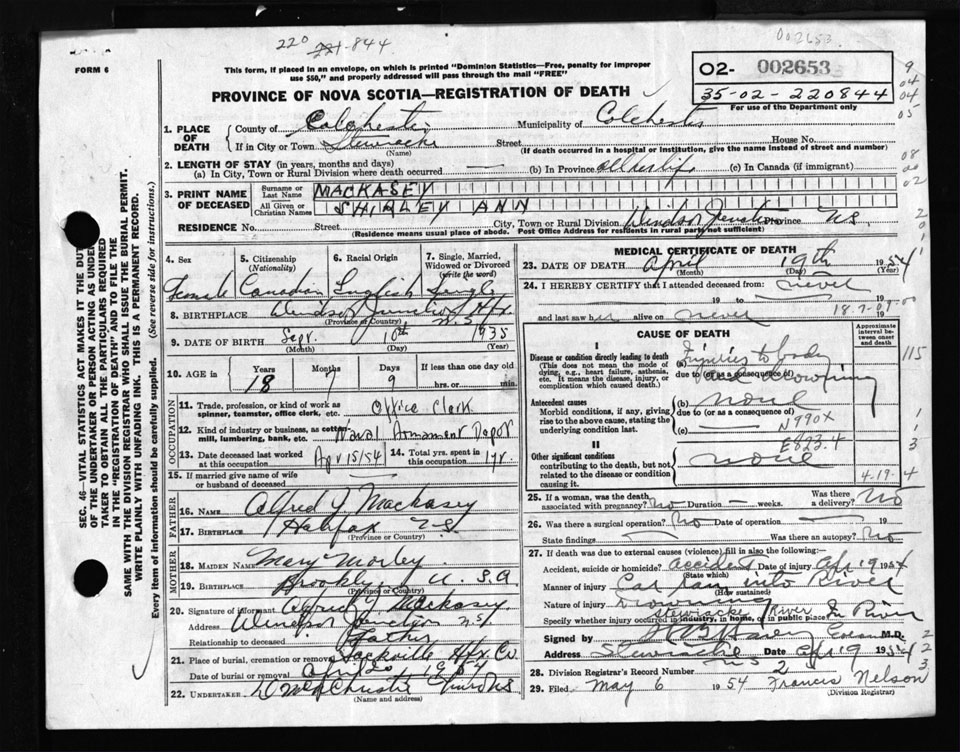 220
221-844
002653
FORM 6
This form, if placed in an envelope, on which is printed "Dominion Statistics—Free, penalty for improper
use $50," and properly addressed will pass through the mail "FREE"
PROVINCE OF NOVA SCOTIA—REGISTRATION OF DEATH
02- 002653
35-02-220844
For use of the Department only
1. PLACE OF DEATH
County of Colchester Municipality of Colchester
If in City or Town Stewiacke Street House No.
(Name) (If death occurred in a hospital or institution, give the name instead of street and number)
2. LENGTH OF STAY (in years, months and days)
(a) In City, Town or Rural Division where death occurred (b) In Province all her life (c) In Canada (if immigrant)
3. PRINT NAME OF DECEASED
Surname or Last Name MACKASEY
All Given or Christian Names SHIRLEY ANN
RESIDENCE No. Street City, Town or Rural Division Windsor Junction Province N.S.
(Residence means usual place of abode. Post Office Address for residents in rural parts not sufficient)
SEC. 46—VITAL STATISTICS ACT MAKES IT THE DUTY
OF THE UNDERTAKER OR PERSON ACTING AS UNDER-
TAKER TO OBTAIN ALL THE PARTICULARS REQUIRED
IN THE "REGISTRATION OF DEATH" AND TO FILE THE
SAME WITH THE DIVISION REGISTRAR WHO SHALL ISSUE THE BURIAL PERMIT.
WRITE PLAINLY WITH UNFADING INK. THIS IS A PERMANENT RECORD.
Every item of information should be carefully supplied. (See reverse side for instructions.)
4. Sex 5. Citizenship (Nationality) 6. Racial Origin 7. Single, Married, Widowed or Divorced (write the word)
Female Canadian English Single
8. BIRTHPLACE Windsor Junction Hfx. N.S.
(Province or Country)
9. DATE OF BIRTH Sept. 10th 1935
(Month) (Day) (Year)
10. AGE in Years Months Days If less than one day old
18 7 9 hrs. or min.
OCCUPATION
11. Trade, profession, or kind of work as
spinner, teamster, office clerk, etc. Office Clerk
12. Kind of industry or business, as cotton-
mill, lumbering, bank, etc. Naval Armament Depot
13. Date deceased last worked
at this occupation Apr 15/54
14. Total yrs. spent in
this occupation 1 yr.
15. If married give name of wife
or husband of deceased
FATHER
16. Name Alfred J. Mackasey
17. Birthplace Halifax N.S.
(Province or Country)
MOTHER
18. Maiden Name Mary Morley
19. Birthplace Brooklyn U.S.A.
(Province or Country)
20. Signature of informant Alfred J. Mackasey
Address Windsor Junction N.S.
Relationship to deceased Father
21. Place of burial, cremation or removal Sackville Hfx. Co.
Date of burial or removal April 20 1954
22. UNDERTAKER
(Name and Address)
MEDICAL CERTIFICATE OF DEATH
23. DATE OF DEATH April 19th 1954
(Month) (Day) (Year)
24. I HEREBY CERTIFY that I attended deceased from: never
19 to 19
and last saw her alive on never
CAUSE OF DEATH
Approximate interval between onset and death
I
Disease or condition directly leading to death
(This does not mean the mode of
dying, e.g., heart failure, asthenia,
etc. It means the disease, injury, or
complication which caused death.)
(a) Injuries to body
due to (or as a consequence of)
and Drowning
Antecedent causes
Morbid conditions, if any, giving
rise to the above cause, stating the
underlying condition last.
(b) none
due to (or as a consequence of)
(c) N990X
II
E823.4
Other significant conditions
contributing to the death, but not
related to the disease or condition
causing it.
none
4-19-4
25. If a woman, was the death
associated with pregnancy? No Duration weeks. Was there a delivery? No
26. Was there a surgical operation? No Date of operation 19
State findings Was there an autopsy? No
27. If death was due to external causes (violence) fill in also the following:—
Accident, suicide or homicide? accident Date of injury Apr 19 1954
(State which)
Manner of injury Car ran into River
(How sustained)
Nature of injury Drowning
Stewiacke River
Specify whether injury occurred in industry, in home, or in public place In River
Signed by M.D.
Address Stewiacke N.S. Date Apr 19 1954
28. Division Registrar's Record Number 2
29. Filed May 6 1954 Francis Nelson
(Division Registrar)